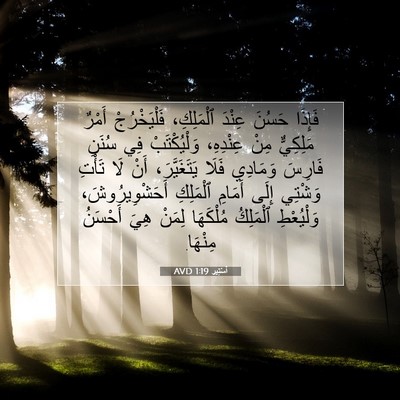 فَإِذَا حَسُنَ عِنْدَ ٱلْمَلِكِ، فَلْيَخْرُجْ أَمْرٌ
مَلِكِيٌّ مِنْ عِنْدِهِ، وَلْيُكْتَبْ فِي سُنَنِ
فَارِسَ وَمَادِي فَلَا يَتَغَيَّرَ، أَنْ لَا تَأْتِ
وَشْتِي إِلَى أَمَامِ ٱلْمَلِكِ أَحَشْوِيرُوشَ،
وَلْيُعْطِ ٱلْمَلِكُ مُلْكَهَا لِمَنْ هِيَ أَحْسَنُ
مِنْهَا.
أستير 1:19 AVD